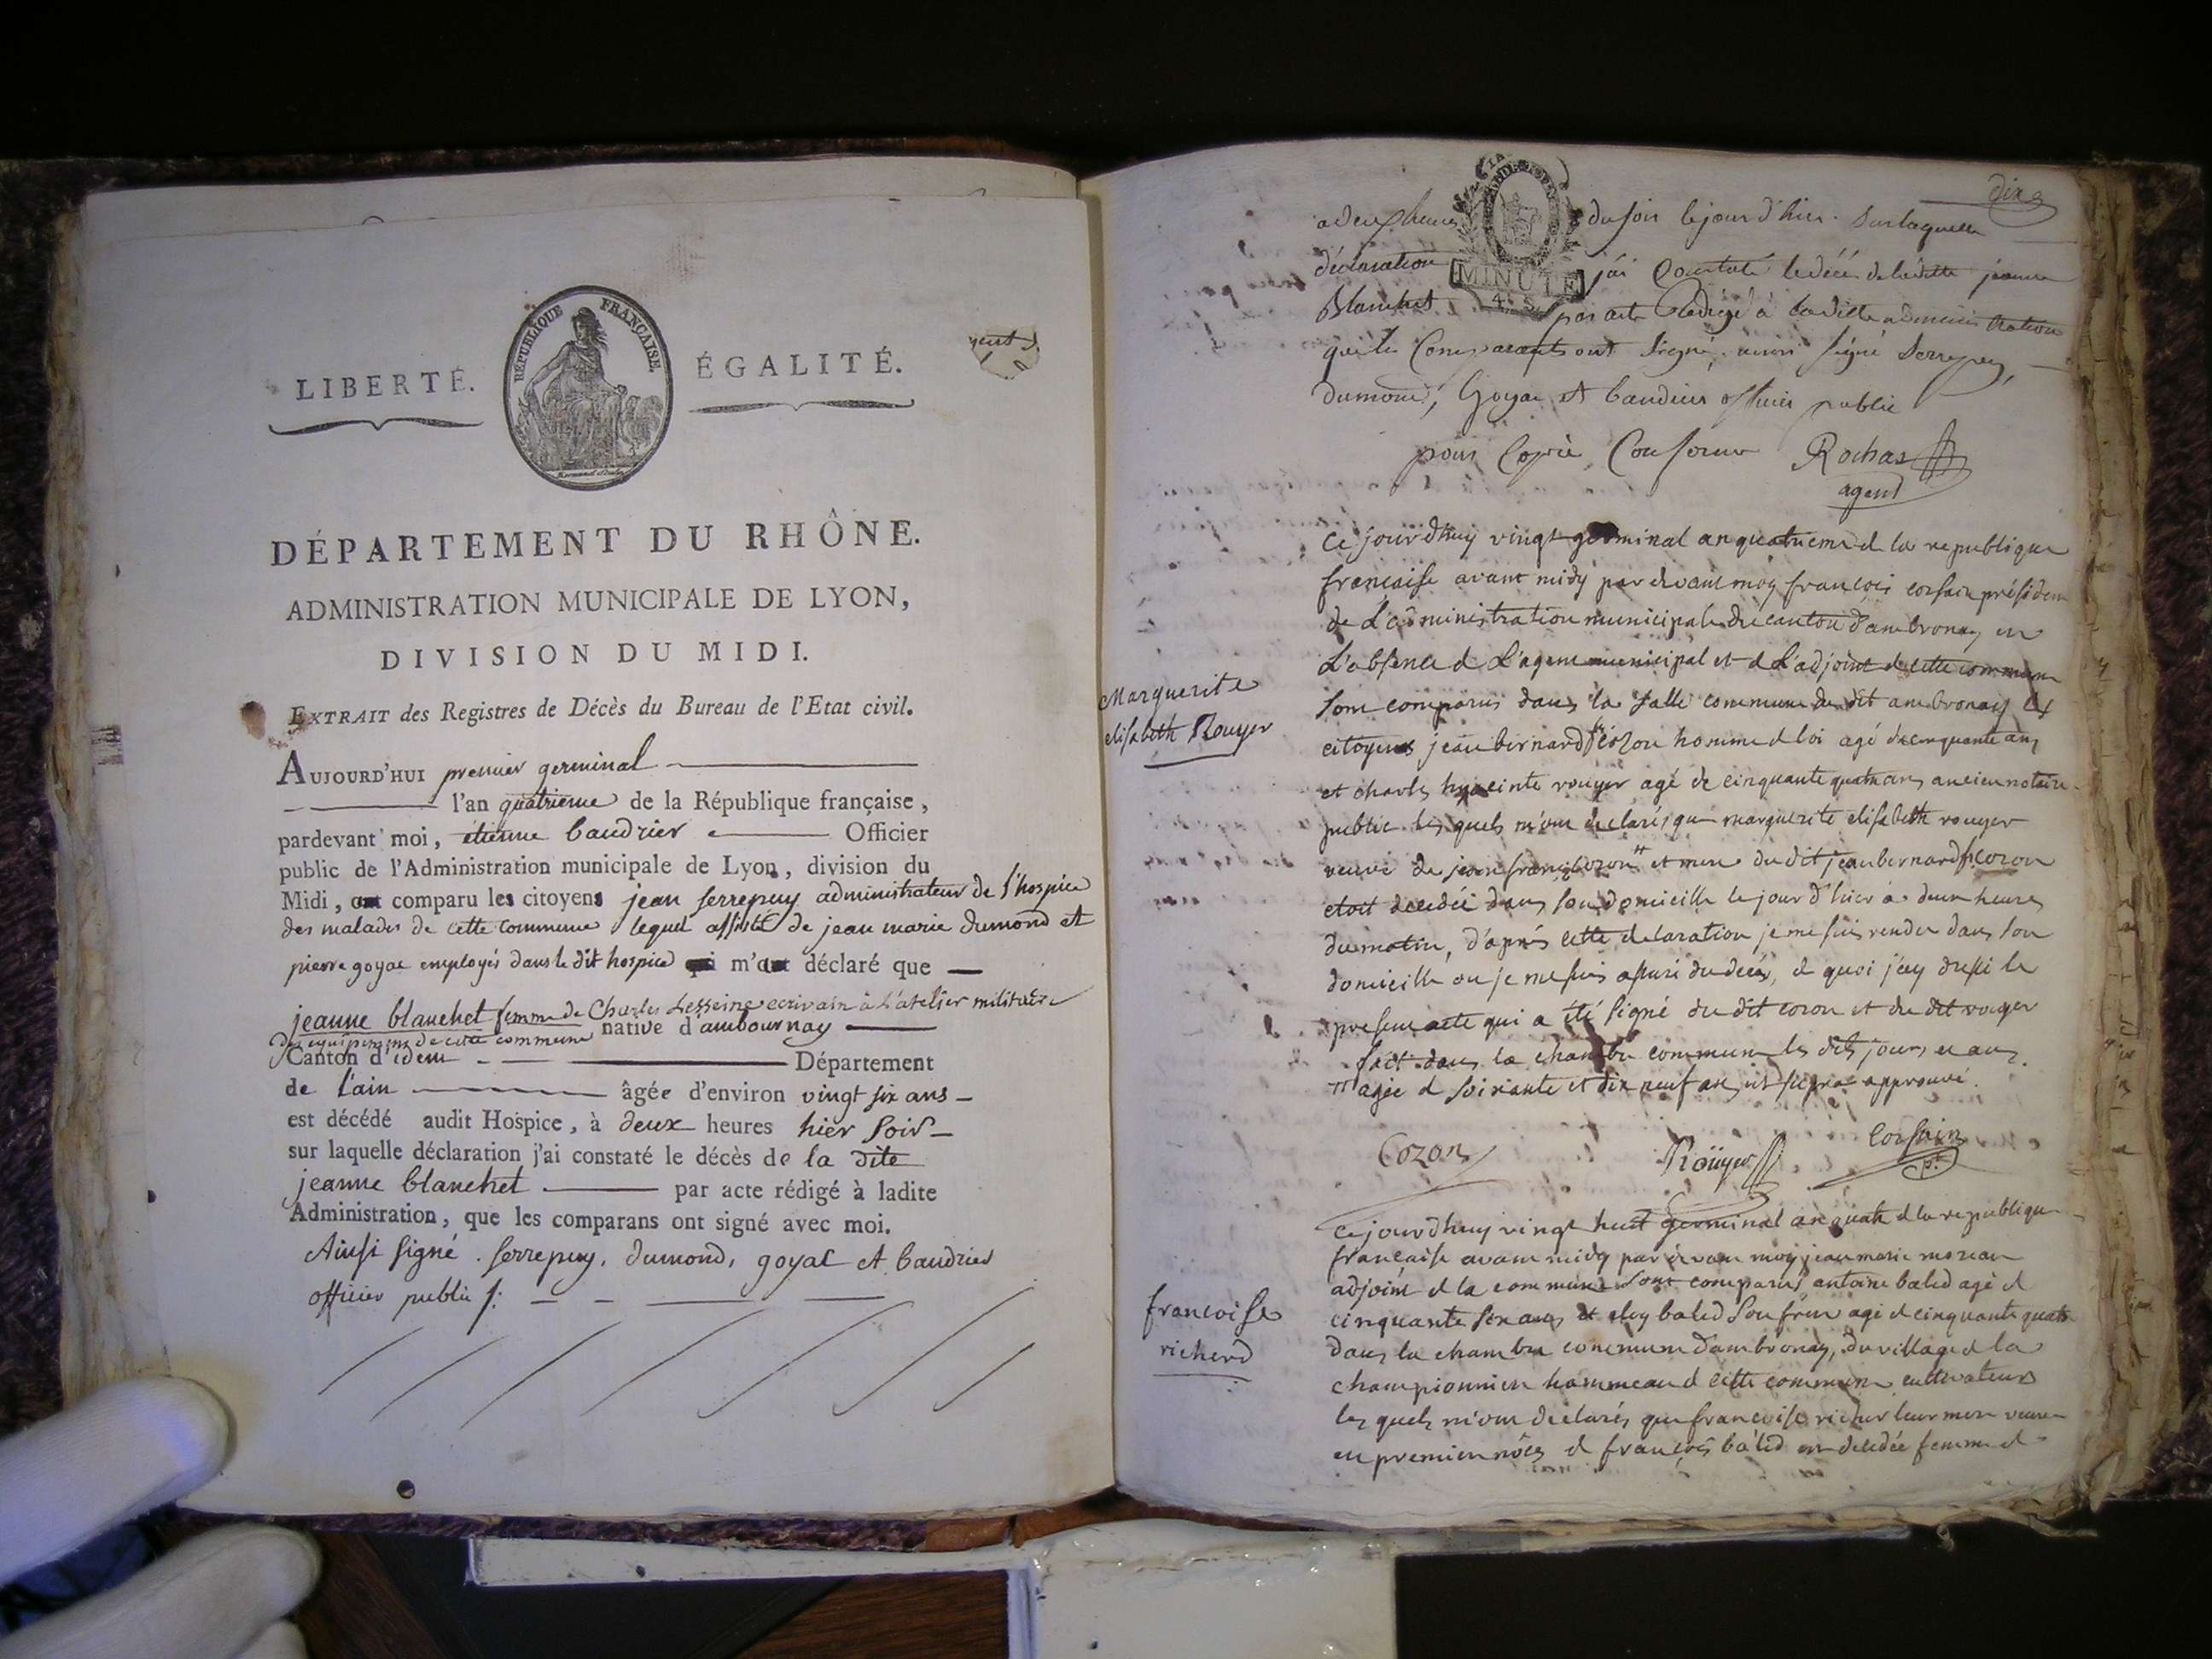 RÉPUBLIQUE FRANÇAISE.
LIBERTÉ. ÉGALITÉ.
DÉPARTEMENT DU RHÔNE.
ADMINISTRATION MUNICIPALE DE LYON,
DIVISION DU MIDI.
EXTRAIT des Registres de Décès du Bureau de l'Etat civil.
AUJOURD'HUI premier germinal
l'an quatrieme de la République française,
pardevant moi, étienne baudrier Officier
public de l'Administration municipale de Lyon, division du
Midi, ont comparu les citoyens jean serrepuy administrateur de l'hospice
des malades de cette commune lequel assisté de jean marie dumond et
pierre goyac employés dans le dit hospice qui m'ont déclaré que
jeanne blanchet femme de Charles Lesseine ecrivain à l'atelier militaire
des equipemens de cette commune native d'ambournay
Canton d'idem Département
de l'ain âgée d'environ vingt six ans
est décédé audit Hospice, à deux heures hier soir
sur laquelle déclaration j'ai constaté le décès de la dite
jeanne blanchet par acte rédigé à ladite
Administration, que les comparans ont signé avec moi.
Ainsi signé. serrepuy, dumond, goyac et baudrier
officier public
dix
a deux heures du soir le jour d'hier. Sur laquelle
déclaration j'ai Constaté le décé de ladite jeanne
Blanchet par acte Redigé à la dite administration
que les Comparants ont signé, ainsi signé Serrepuy,
dumond, Goyac et baudrier officier public
pour Copie Conforme Rochas
agent
MINUTE
Marguerite
elisabeth Rouyer
ce jourdhuy vingt germinal an quatrieme d la republique
francaise avant midy par devant moy francois corsain présiden
de L'administration municipale du canton d'ambronay en
L'absence d L'agent municipal et d L'adjoint d cette commune
sont comparus dans la salle commune du dit ambronay les
citoyens jean bernard cozon homme d loi agé de cinquante ans
et charles hyacinte rouyer agé de cinquante quatre ans ancien notaire
public les quels m'ont declarés que marguerite elisabeth rouyer
veuve de jean franç cozon et mere du dit jean bernard cozon
etoit decedée dans son domicille le jour d'hier a deux heures
du matin, d'après cette declaration je me suis rendu dans son
domicille ou je me suis assuré du decés, d quoi j'ay dressé le
present acte qui a été signé du dit cozon et du dit rouyer
fait dans la chambre commune les dits jours et an
agée d soixante et dix neuf ans approuvé.
Cozon Roüyer Corsain
francoise
richerd
ce jourdhuy vingt huit germinal an quatre d la republique
francaise avant midy par devant moy jean marie moreau
adjoint d la commune sont comparus antoine baled agé d
cinquante six ans et eloy baled son frere agé d cinquante quatre
dans la chambre commune d'ambronay, du village d la
championniere hammeau d cette commune cultivateurs
les quels m'ont declarés que francoise richer leur mere veuve
en premier nôces d françois baled est decedée femme d